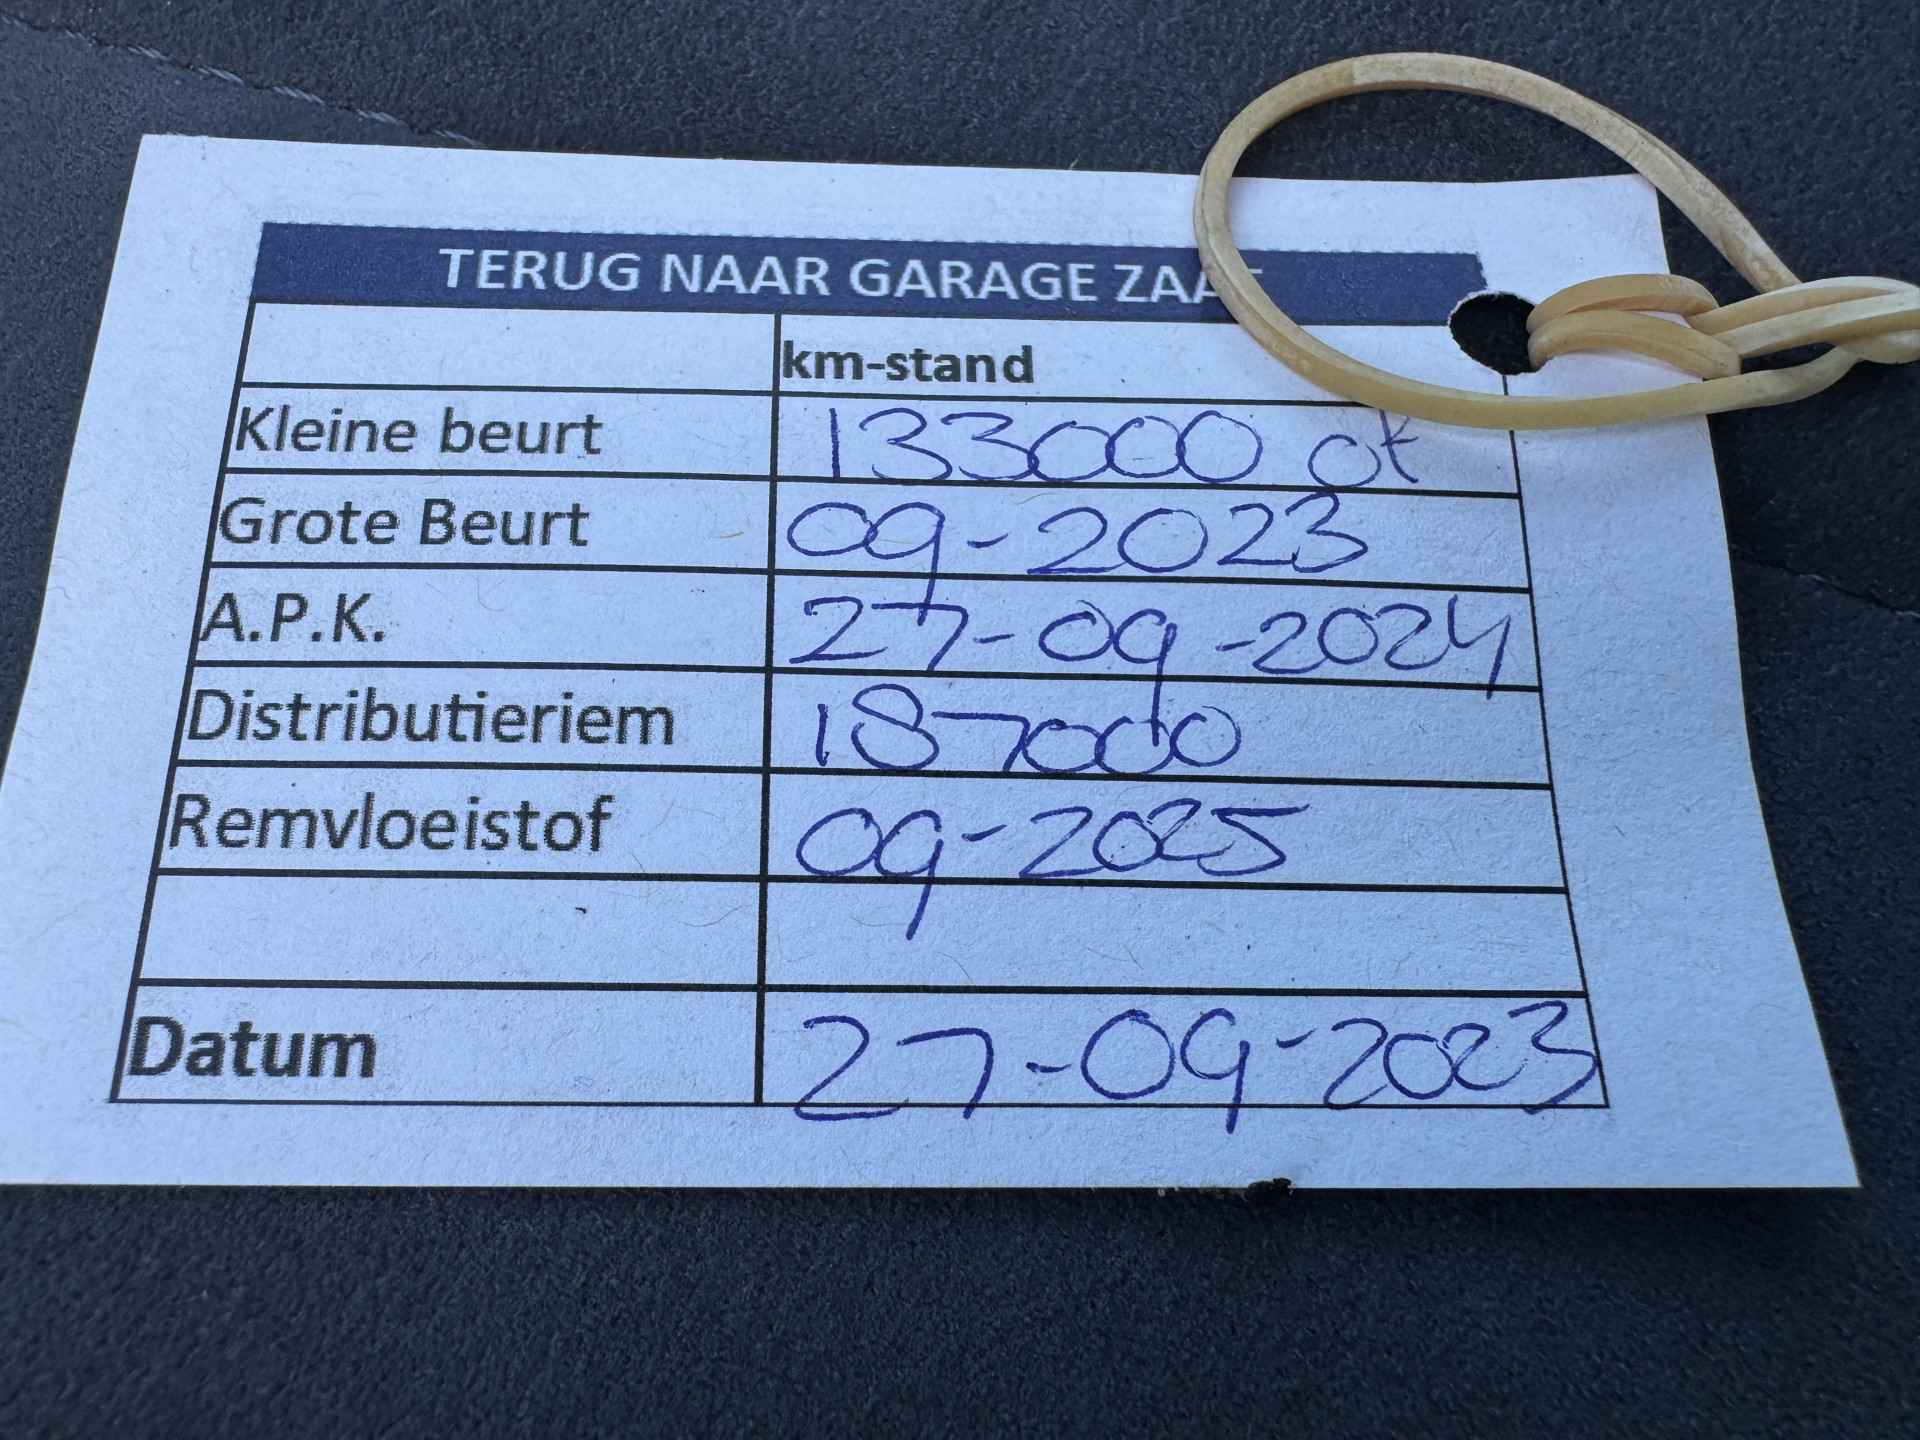 TERUG NAAR GARAGE
km-stand
Kleine beurt 133000 of
Grote Beurt 09-2023
A.P.K. 27-09-2024
Distributieriem 187000
Remvloeistof 09-2025
Datum 27-09-2023